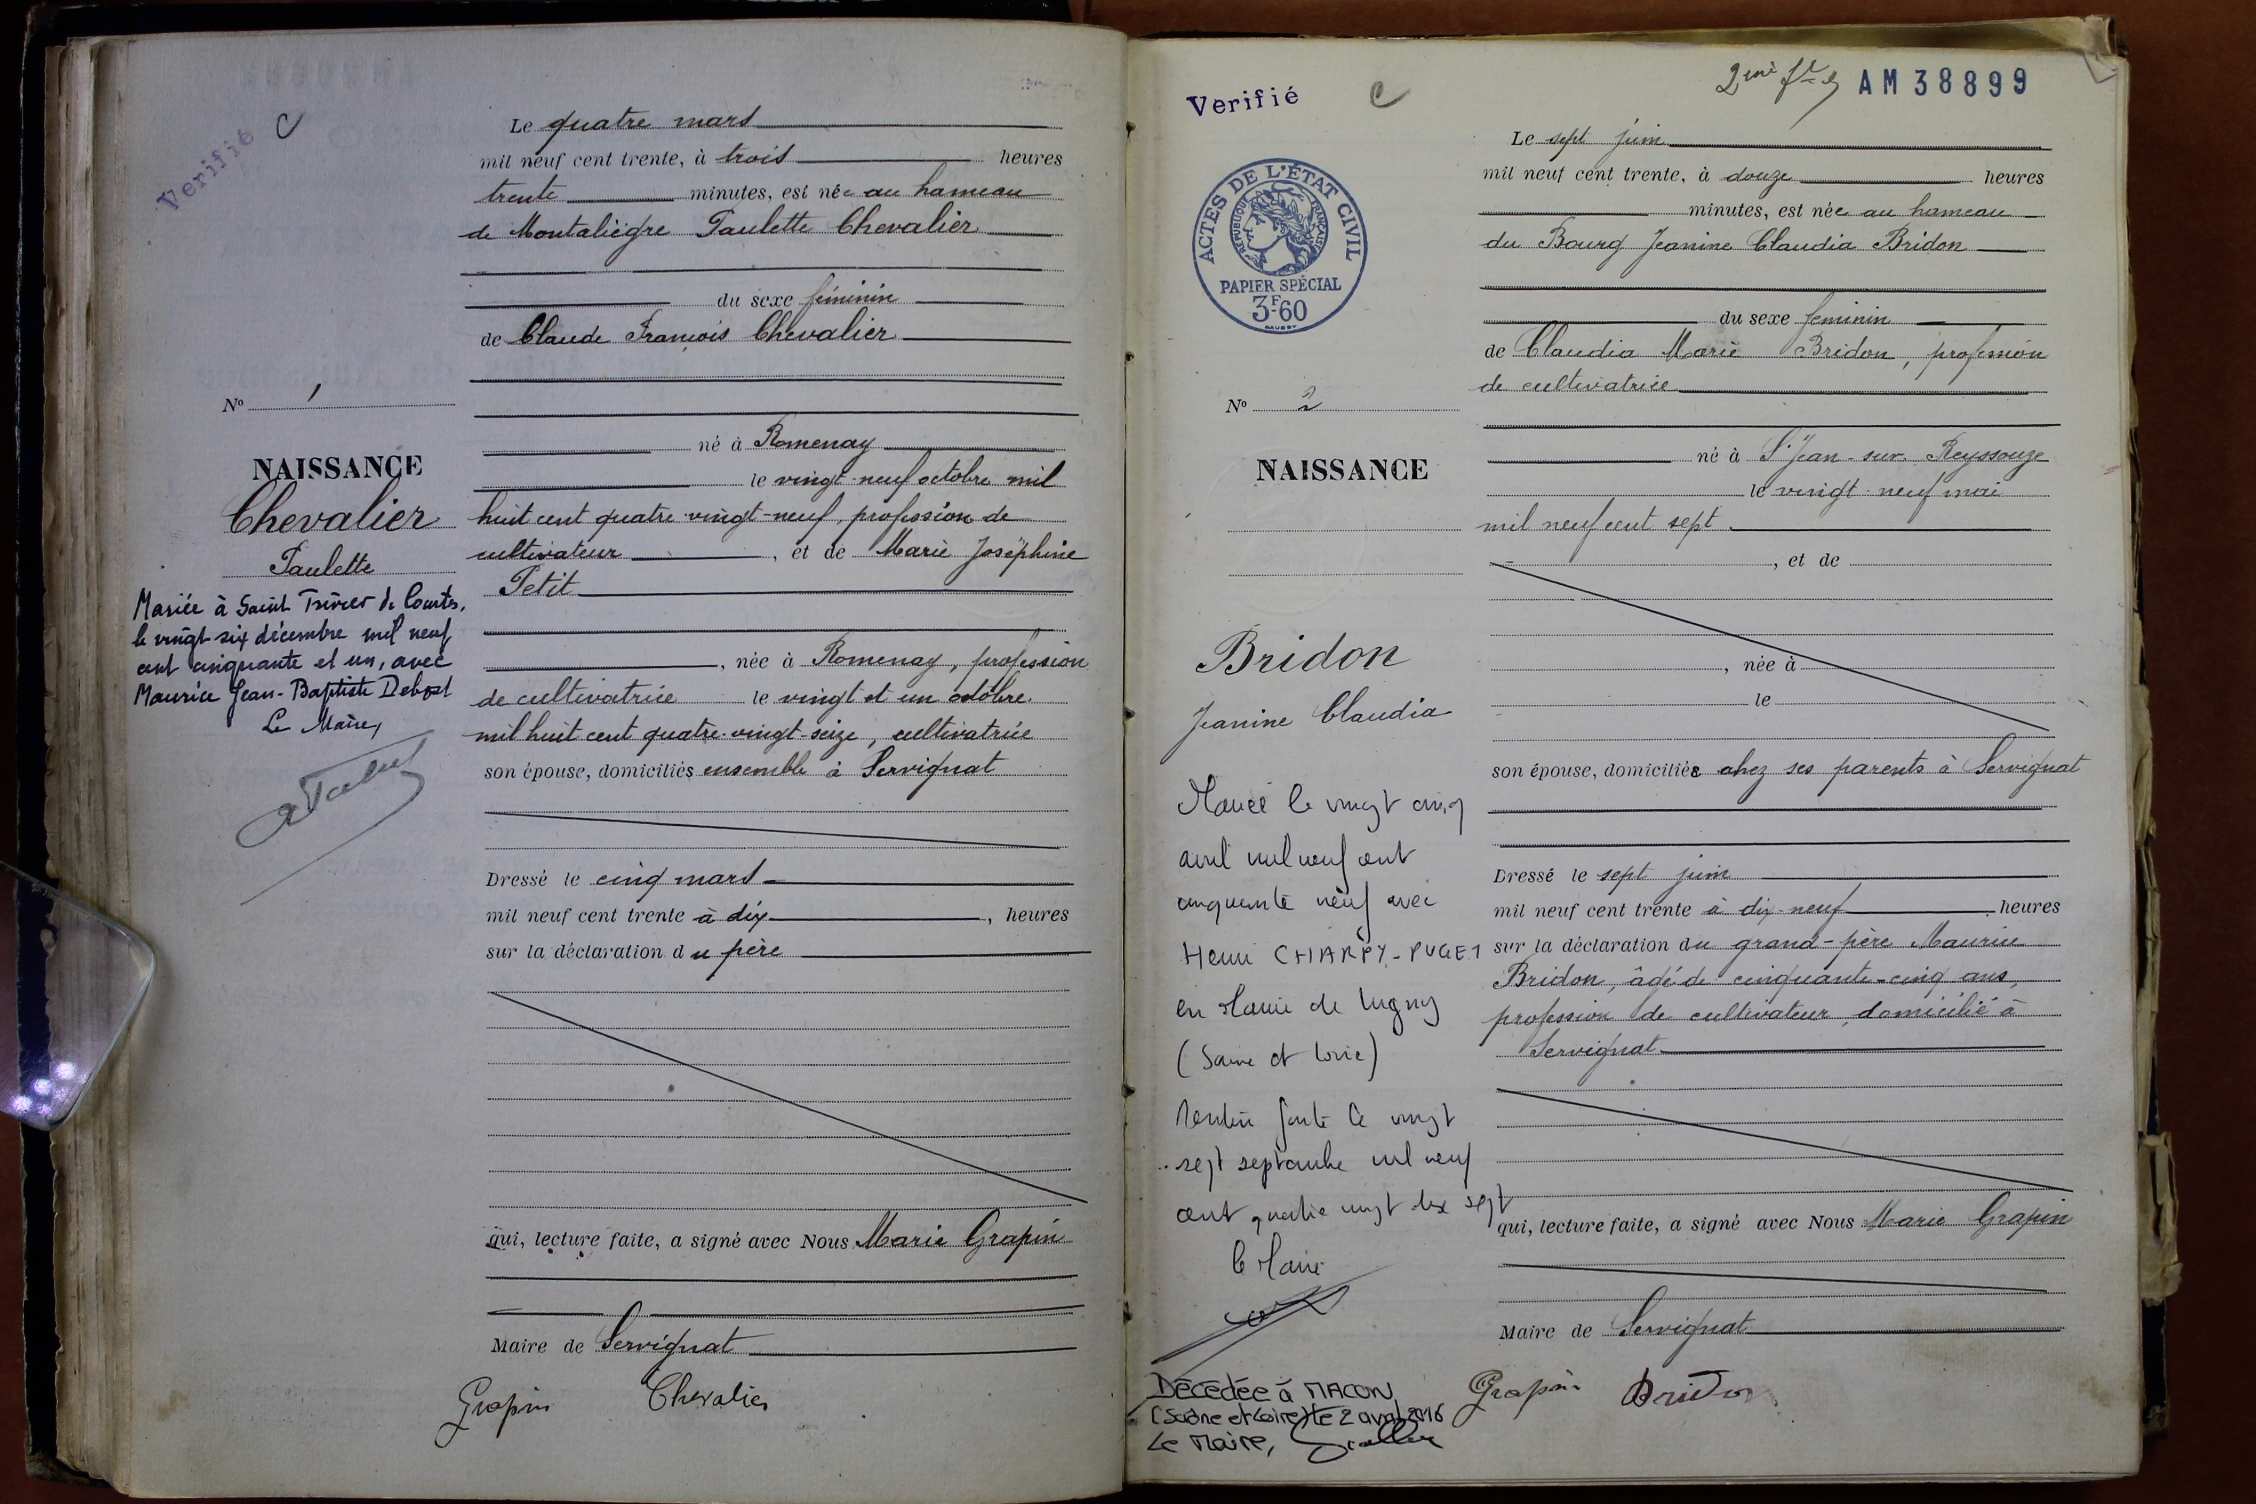 Verifié
C
Le quatre mars
mil neuf cent trente, à trois heures
trente minutes, est née au hameau
de Montaliègre Paulette Chevalier
du sexe féminin
de Claude François Chevalier
No 1
né à Romenay
NAISSANCE
le vingt-neuf octobre mil
Chevalier
huit cent quatre-vingt-neuf, profession de
cultivateur, et de Marie Joséphine
Paulette
Petit
Mariée à Saint Trivier de Courtes,
le vingt-six décembre mil neuf
cent cinquante et un, avec
Maurice Jean-Baptiste Debost
Le Maire,
, née à Romenay, profession
de cultivatrice le vingt et un octobre
mil huit cent quatre-vingt-seize, cultivatrice
son épouse, domiciliés ensemble à Servignat
Dressé le cinq mars
mil neuf cent trente à dix, heures
sur la déclaration du père
qui, lecture faite, a signé avec Nous Marie Grapin
Maire de Servignat
Grapin Chevalier
Verifié
C
2eme
AM 38899
ACTES DE L'ÉTAT CIVIL
RÉPUBLIQUE FRANÇAISE
PAPIER SPÉCIAL
3F60
Le sept juin
mil neuf cent trente, à douze heures
minutes, est née au hameau
du Bourg Jeanine Claudia Bridon
du sexe feminin
de Claudia Marie Bridon, profession
de cultivatrice
No 2
né à St Jean-sur-Reyssouze
NAISSANCE
le vingt-neuf mai
mil neuf cent sept
, et de
, née à
le
Bridon
Jeanine Claudia
son épouse, domiciliée chez ses parents à Servignat
Mariée le vingt cinq
avril mil neuf cent
cinquante neuf avec
Henri CHARPY-PUGET
en Mairie de Lugny
(Saône et Loire)
Mention faite le vingt
sept septembre mil neuf
cent quatre vingt dix sept
le Maire
Dressé le sept juin
mil neuf cent trente à dix-neuf heures
sur la déclaration du grand-père Maurice
Bridon, âgé de cinquante-cinq ans,
profession de cultivateur, domicilié à
Servignat
qui, lecture faite, a signé avec Nous Marie Grapin
Maire de Servignat
Grapin Bridon
Décédée à MACON
(Saône et Loire) le 2 avril 2016
Le Maire,